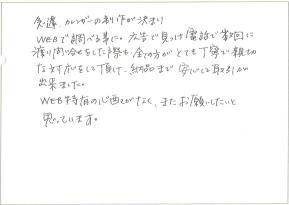 急遽、カレンダーの制作が決まり
WEBで調べる事に。広告で見つけ電話で数回に
渡り問合せをした際も、全ての方がとても丁寧で親切
な対応をして頂け、納品まで安心して取引が
出来ました。
WEB特有の心配がなく、またお願いしたいと
思っています。